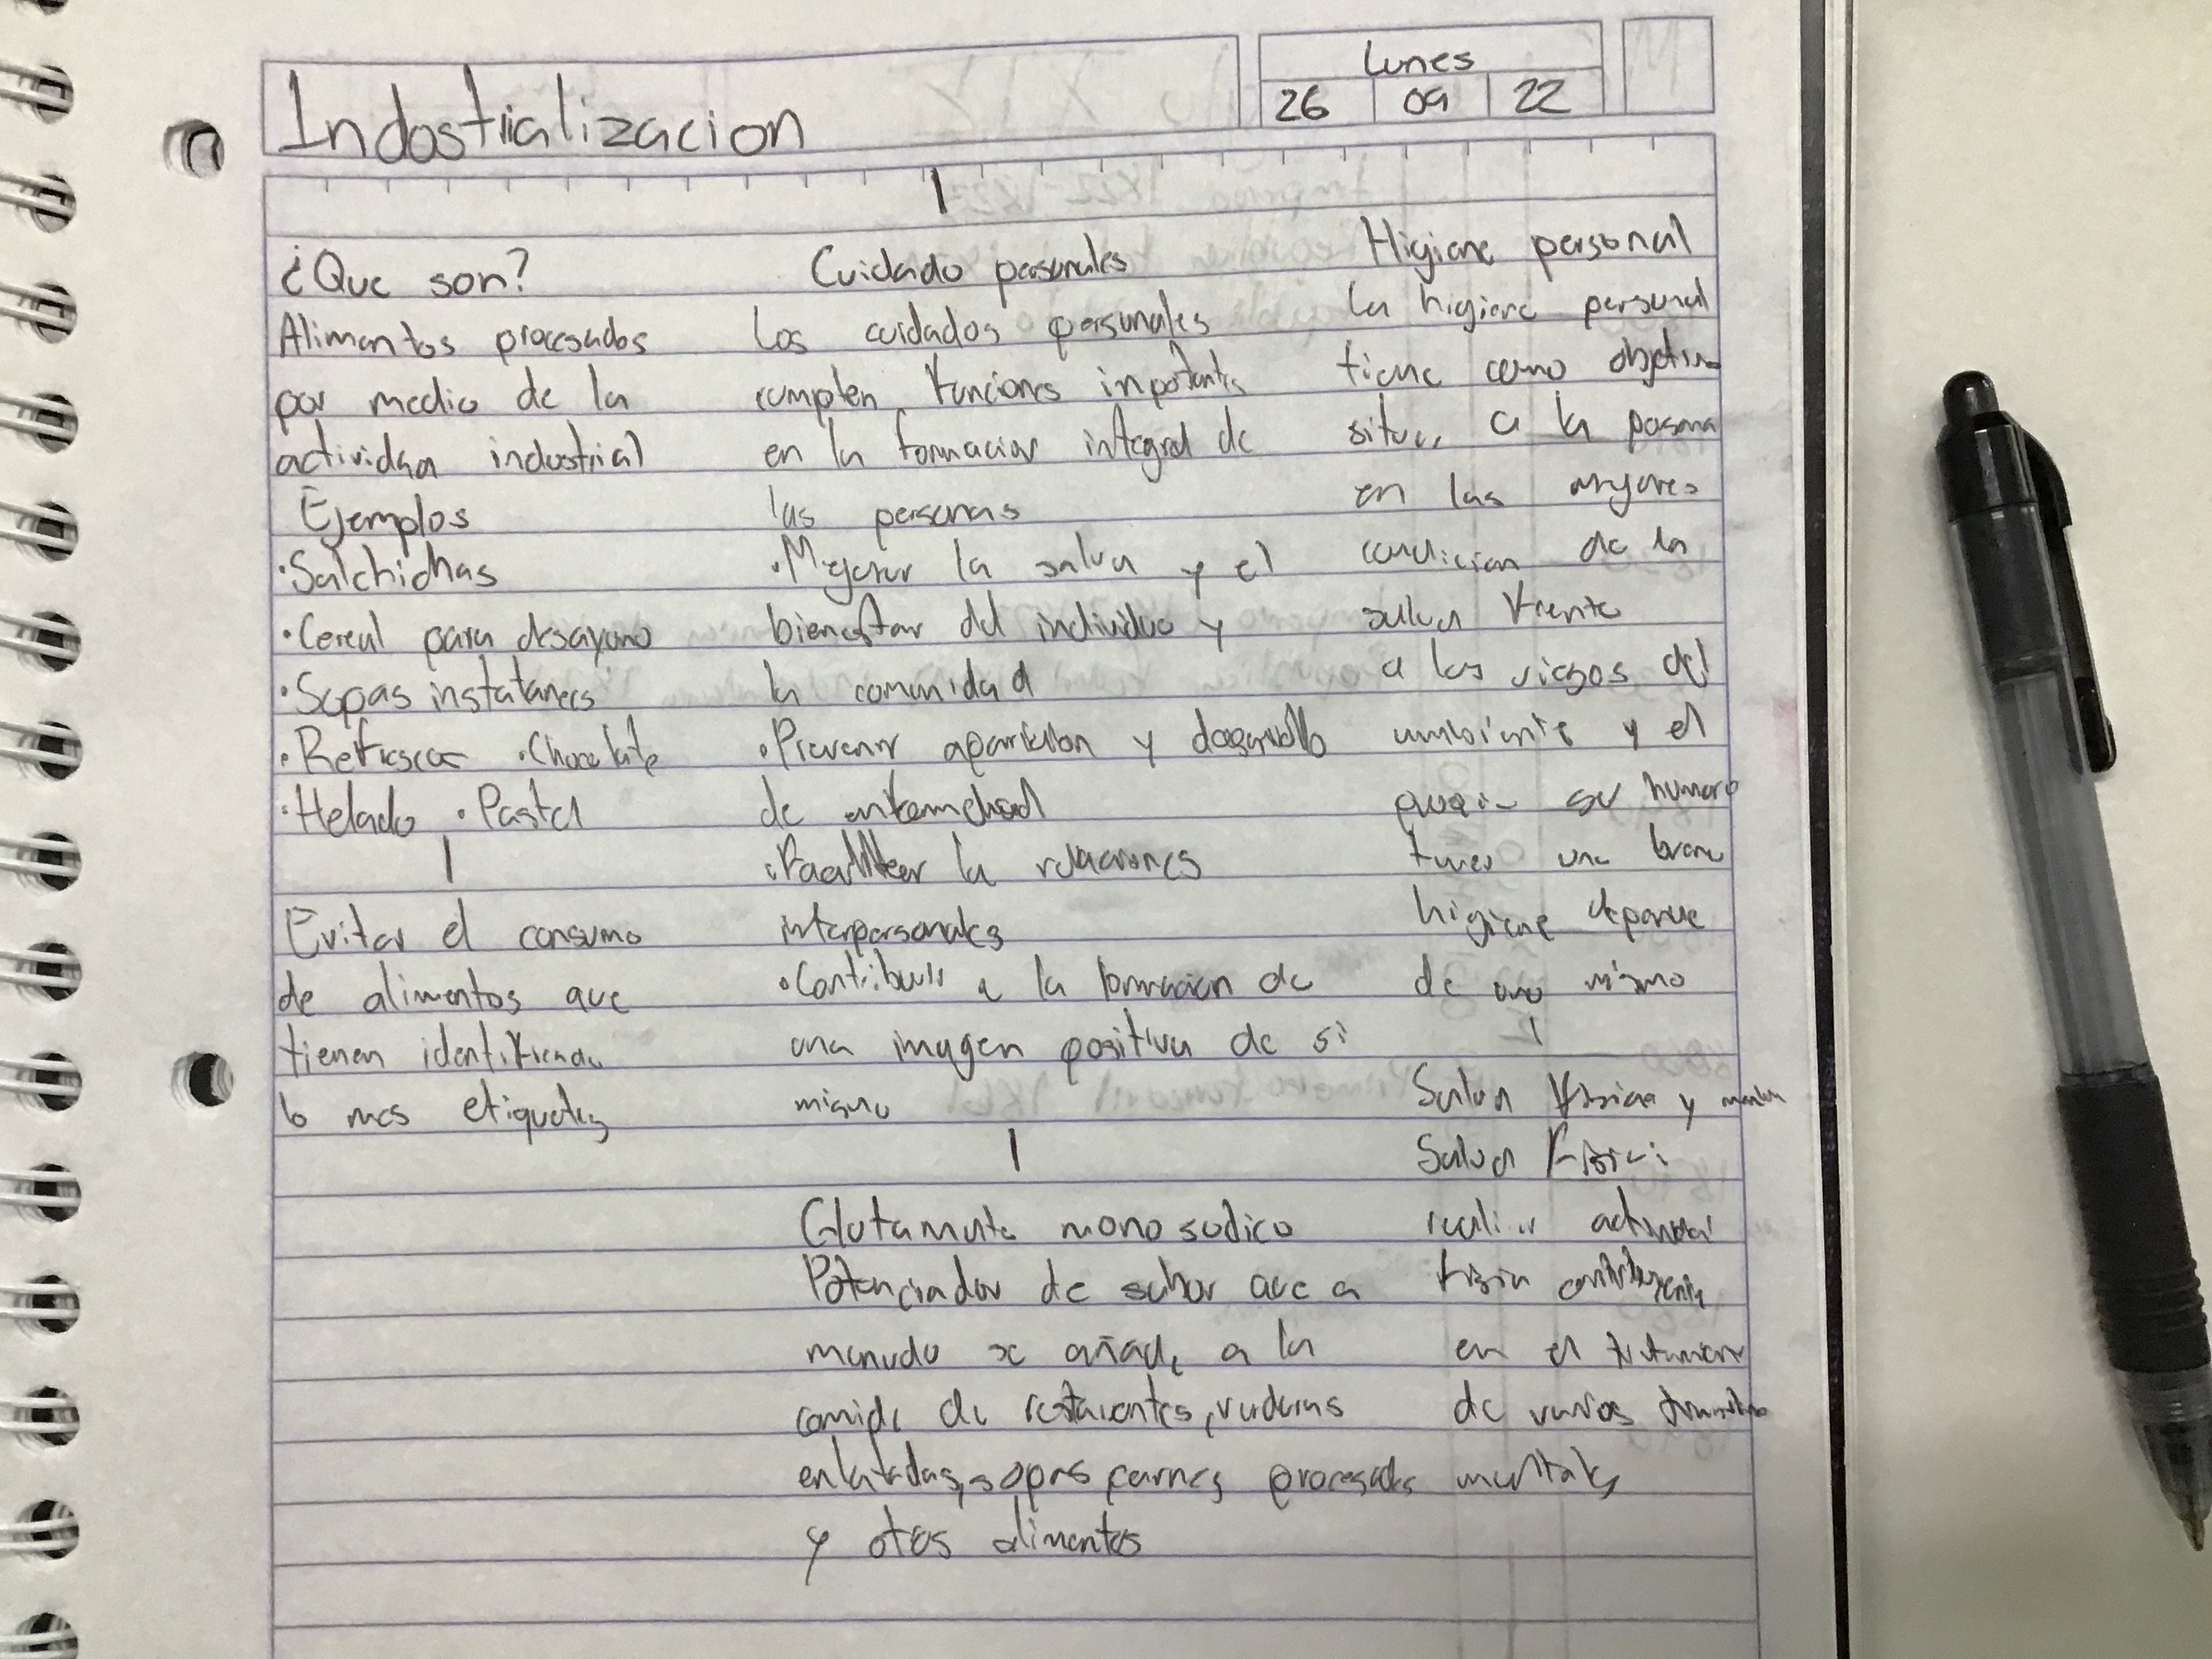 Indostrializacion
Lunes
26 09 22
¿Que son?
Alimentos procesados
por medio de la
actividad industrial
Ejemplos
·Salchichas
·Cereal para desayuno
·Sopas instataneas
·Refrescos ·Chocolate
·Helado ·Pastel
Evitar el consumo
de alimentos que
tienen identificado
lo mas etiquetas
Cuidado personales
Los cuidados personales
cumplen funciones inpotantes
en la formacion integral de
las personas
·Mejorar la salud y el
bienestar del individuo y
la comunidad
·Prevenir aparicion y desarrollo
de enfermedad
·Facilitar la relaciones
interpersonales
·Contribuir a la formacion de
una imagen positiva de si
mismo
Glutamato mono sodico
Potenciador de sabor que a
menudo se añade a la
comida de restaurantes, verduras
enlatadas, sopas carnes procesadas
y otros alimentos
Higiene personal
La higiene personal
tiene como objetivo
situar a la persona
en las mejores
condicion de la
salud frente
a los riesgos del
ambiente y el
humano
tener una buena
higiene depende
de uno mismo
Salud fisica y mental
Salud fisica:
realizar actividad
fisica
en el tratamiento
de varios
mentales